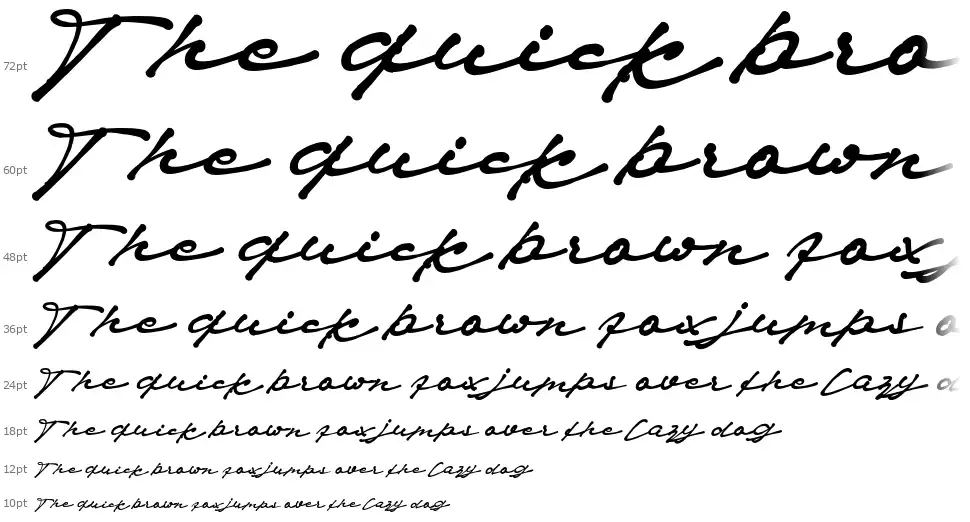 72pt The quick bro
60pt The quick brown
48pt The quick brown fox
36pt The quick brown fox jumps o
24pt The quick brown fox jumps over the lazy d
18pt The quick brown fox jumps over the lazy dog
12pt The quick brown fox jumps over the lazy dog
10pt The quick brown fox jumps over the lazy dog